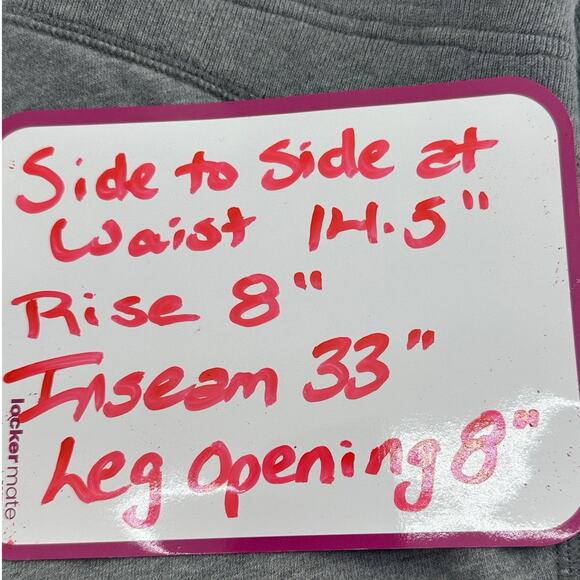 Side to Side at
Waist 14.5"
Rise 8"
Inseam 33"
Leg Opening 8"
lockermate